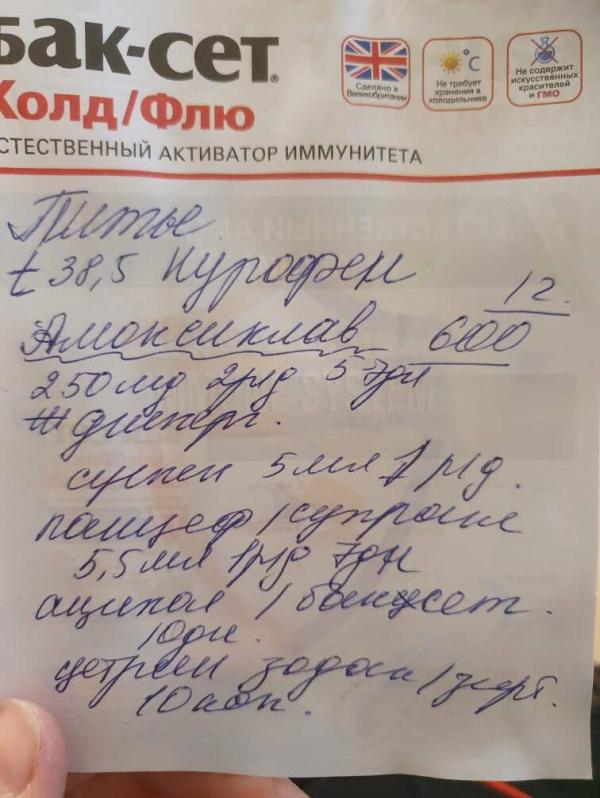 Бак-сет®
Холд/Флю
ЕСТЕСТВЕННЫЙ АКТИВАТОР ИММУНИТЕТА
Сделано в
Великобритании
°C
Не требует
хранения в
холодильнике
Не содержит
искусственных
красителей
и ГМО
Питье
t 38,5 Нурофен
12.
Амоксиклав 600
250 мг 2р/д 5 7дн
суспен 5мл 1 р/д.
панцеф / супракс
5,5мл 1р/д 7дн
аципол / баксет.
10дн.
цетрин зодак / зирт.
10 кап.